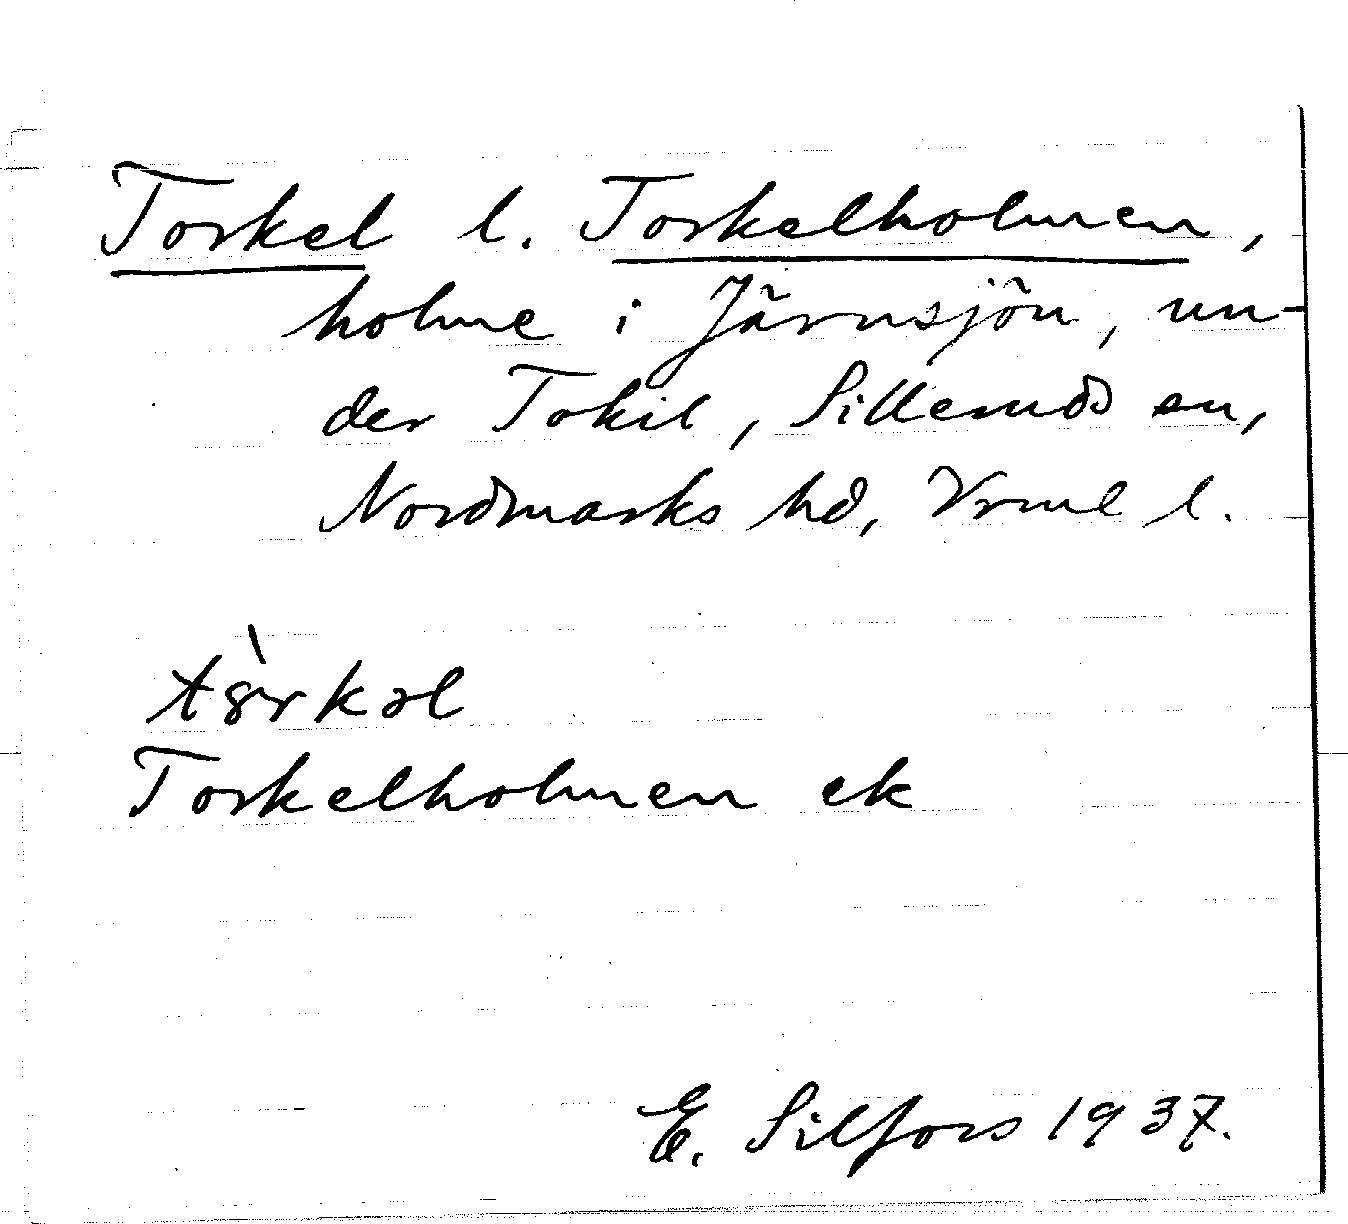 Torkel l. Torkelholmen,
holme i Järnsjön, un-
der Tokil, Sillemds sn,
Nordmarks hd, Vrml l.
tȣ̀rkəl
Torkelholmen ek
E. Silfors 1937.